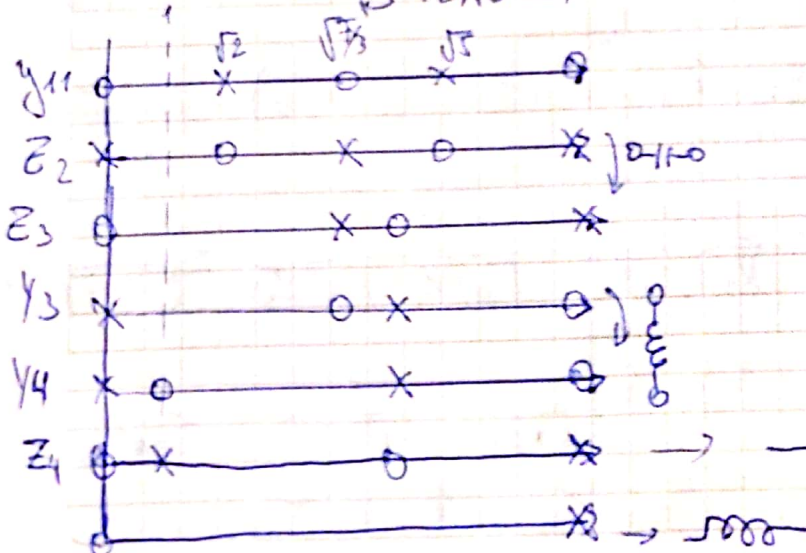 1
√2 √7/3 √5
y11
Z2
Z3
Y3
Y4
Z4